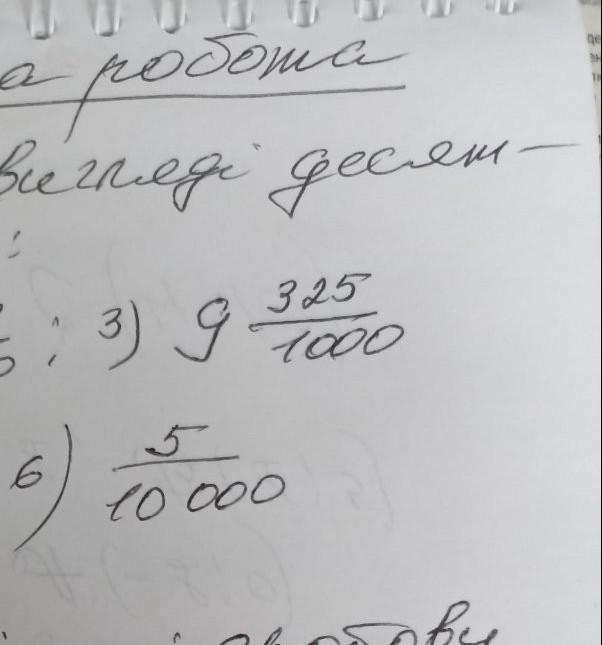 а робота
вигляді десят-
:
; 3) 9 325/1000
6) 5/10 000